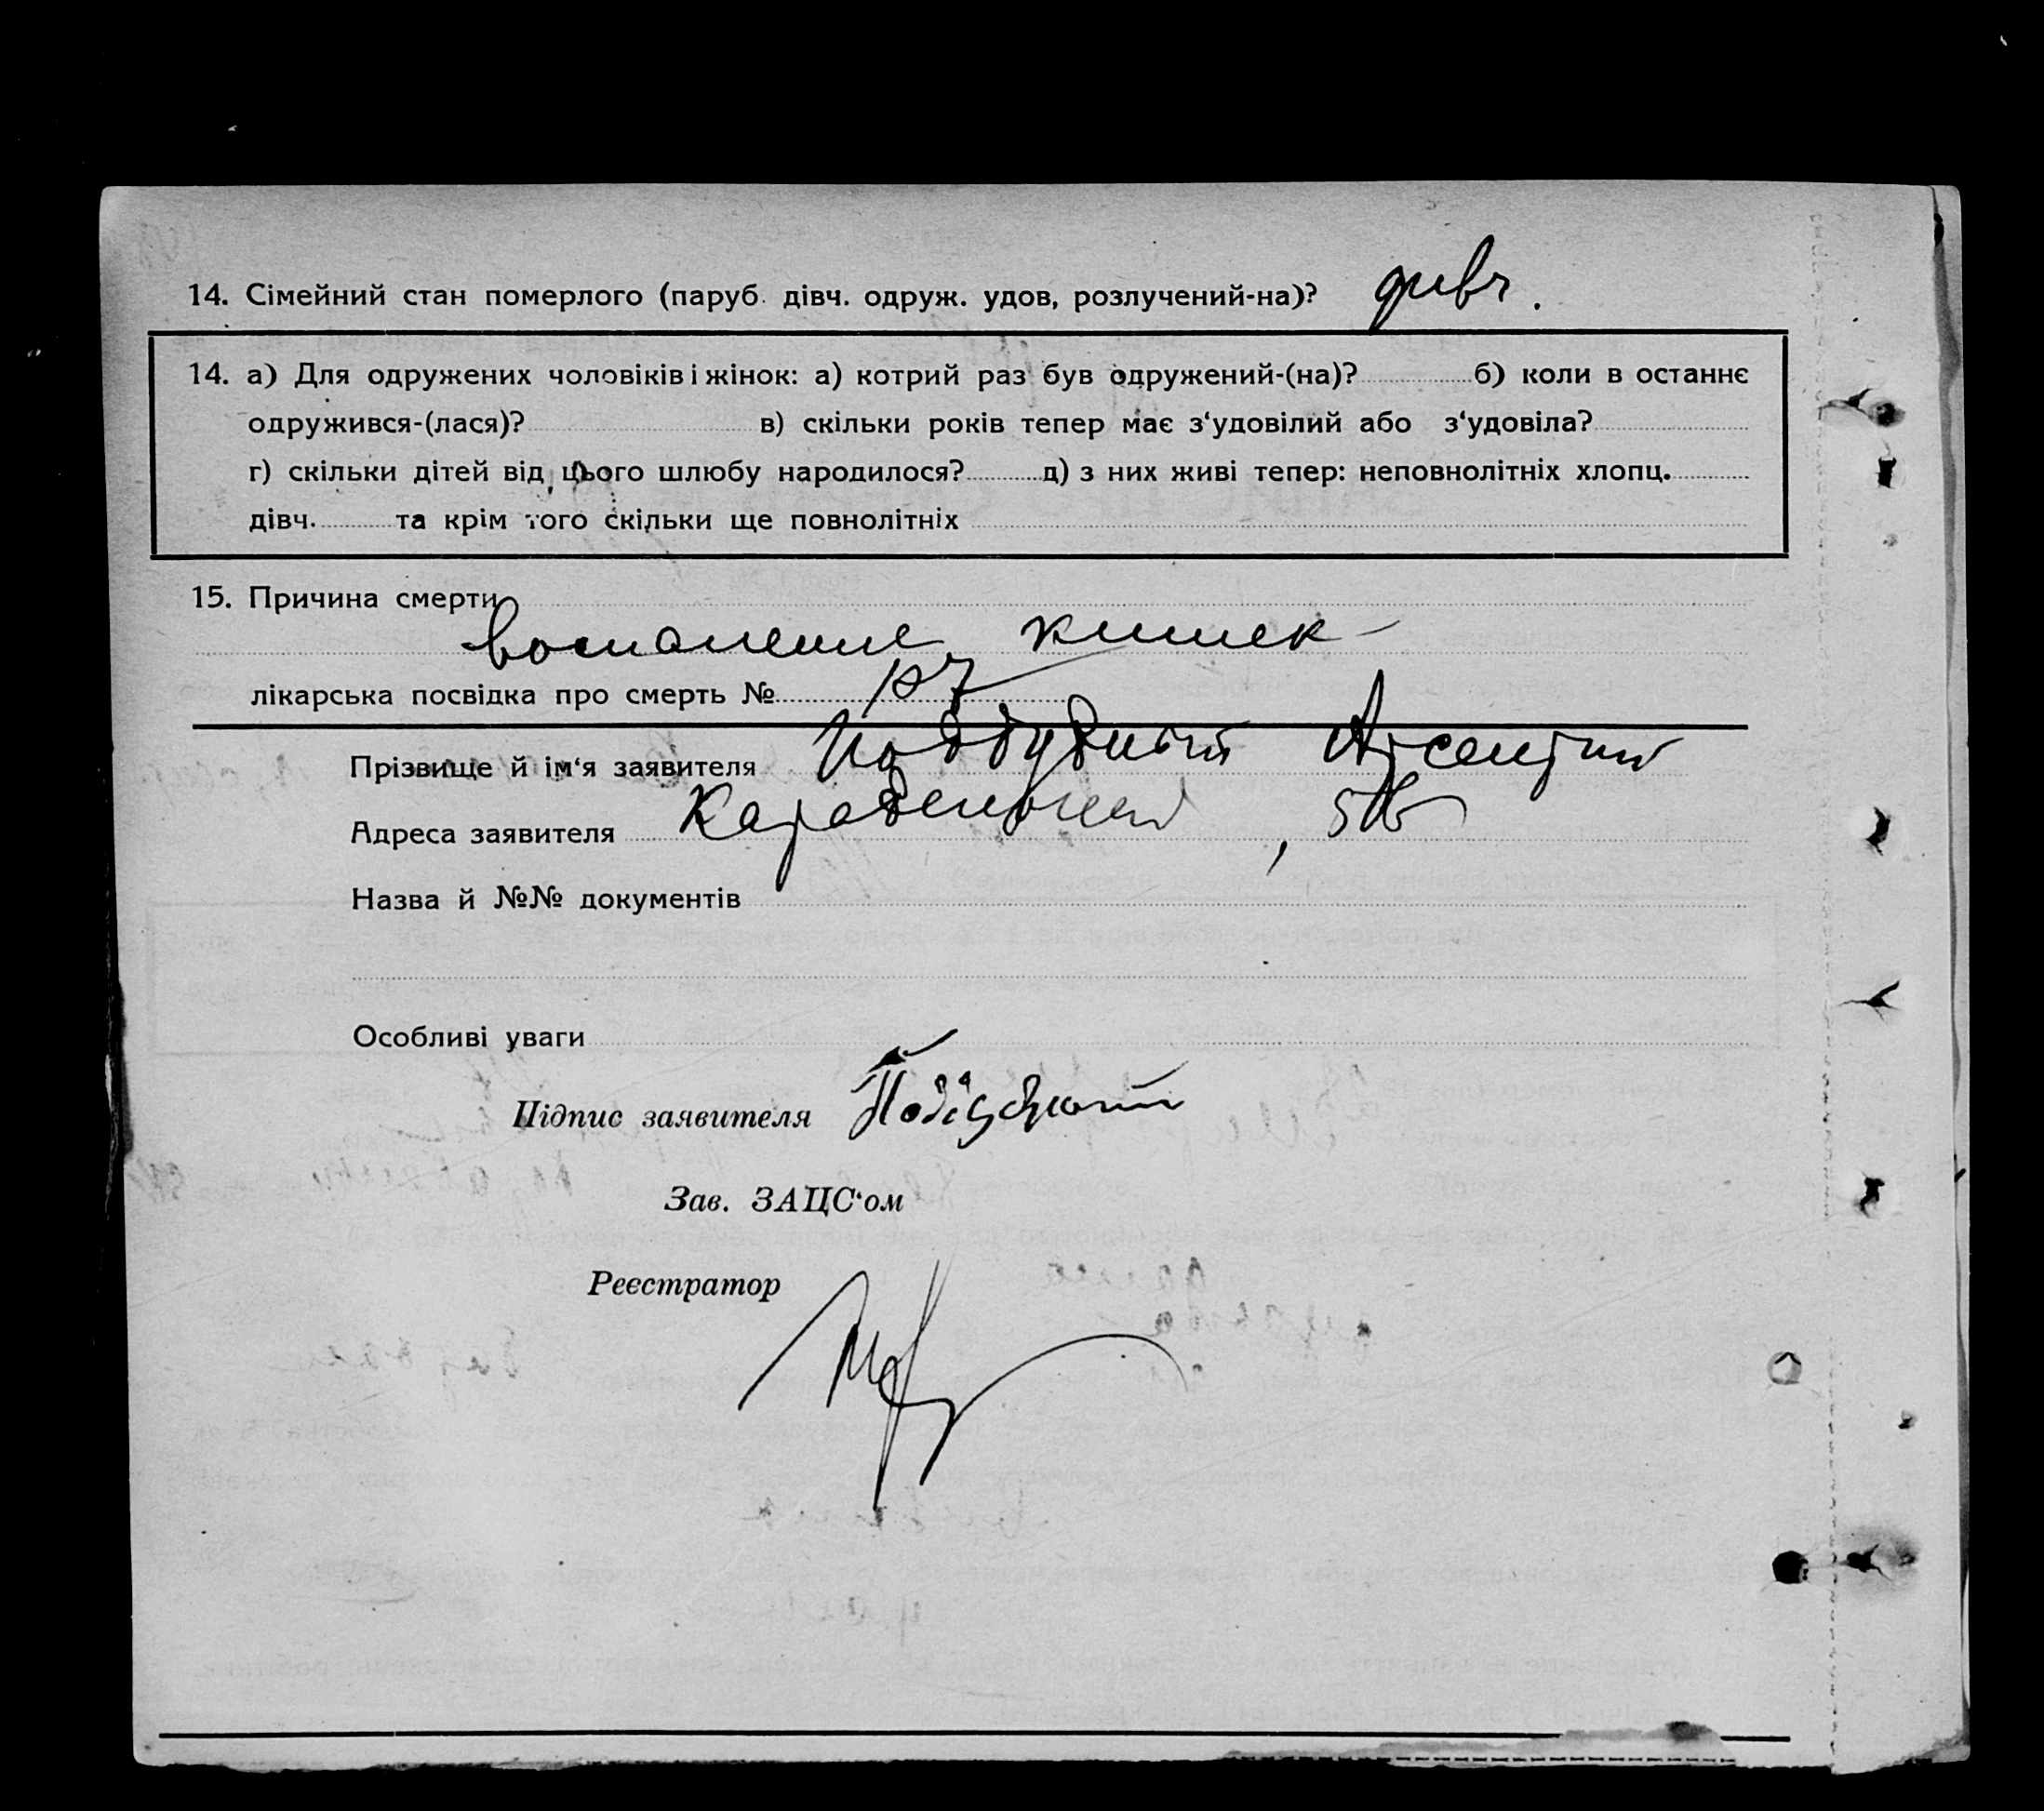 14. Сімейний стан померлого (паруб. дівч. одруж. удов, розлучений-на)? дивч.
14. а) Для одружених чоловіків і жінок: а) котрий раз був одружений-(на)? б) коли в останнє
одружився-(лася)? в) скільки років тепер має з‘удовілий або з‘удовіла?
г) скільки дітей від цього шлюбу народилося? д) з них живі тепер: неповнолітніх хлопц.
дівч. та крім того скільки ще повнолітніх
15. Причина смерти
воспаление кишек
лікарська посвідка про смерть № 107
Прізвище й ім‘я заявителя Поддубный Арсентий
Адреса заявителя
Назва й №№ документів
Особливі уваги
Підпис заявителя
Зав. ЗАЦС‘ом
Реєстратор